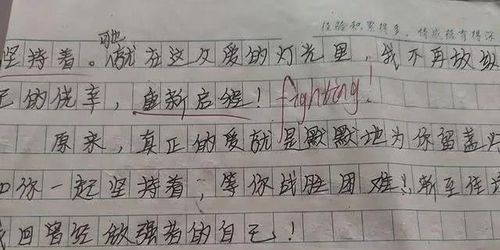 经验积累得多，情感极有得深
坚持着。就在这父爱的灯光里，我不再放纵
己的侥幸，重新启程！fighting！
原来，真正的爱就是默默地为你留盏
和你一起坚持着，等你战胜困难！，渐至佳
回曾经做强者的自己！